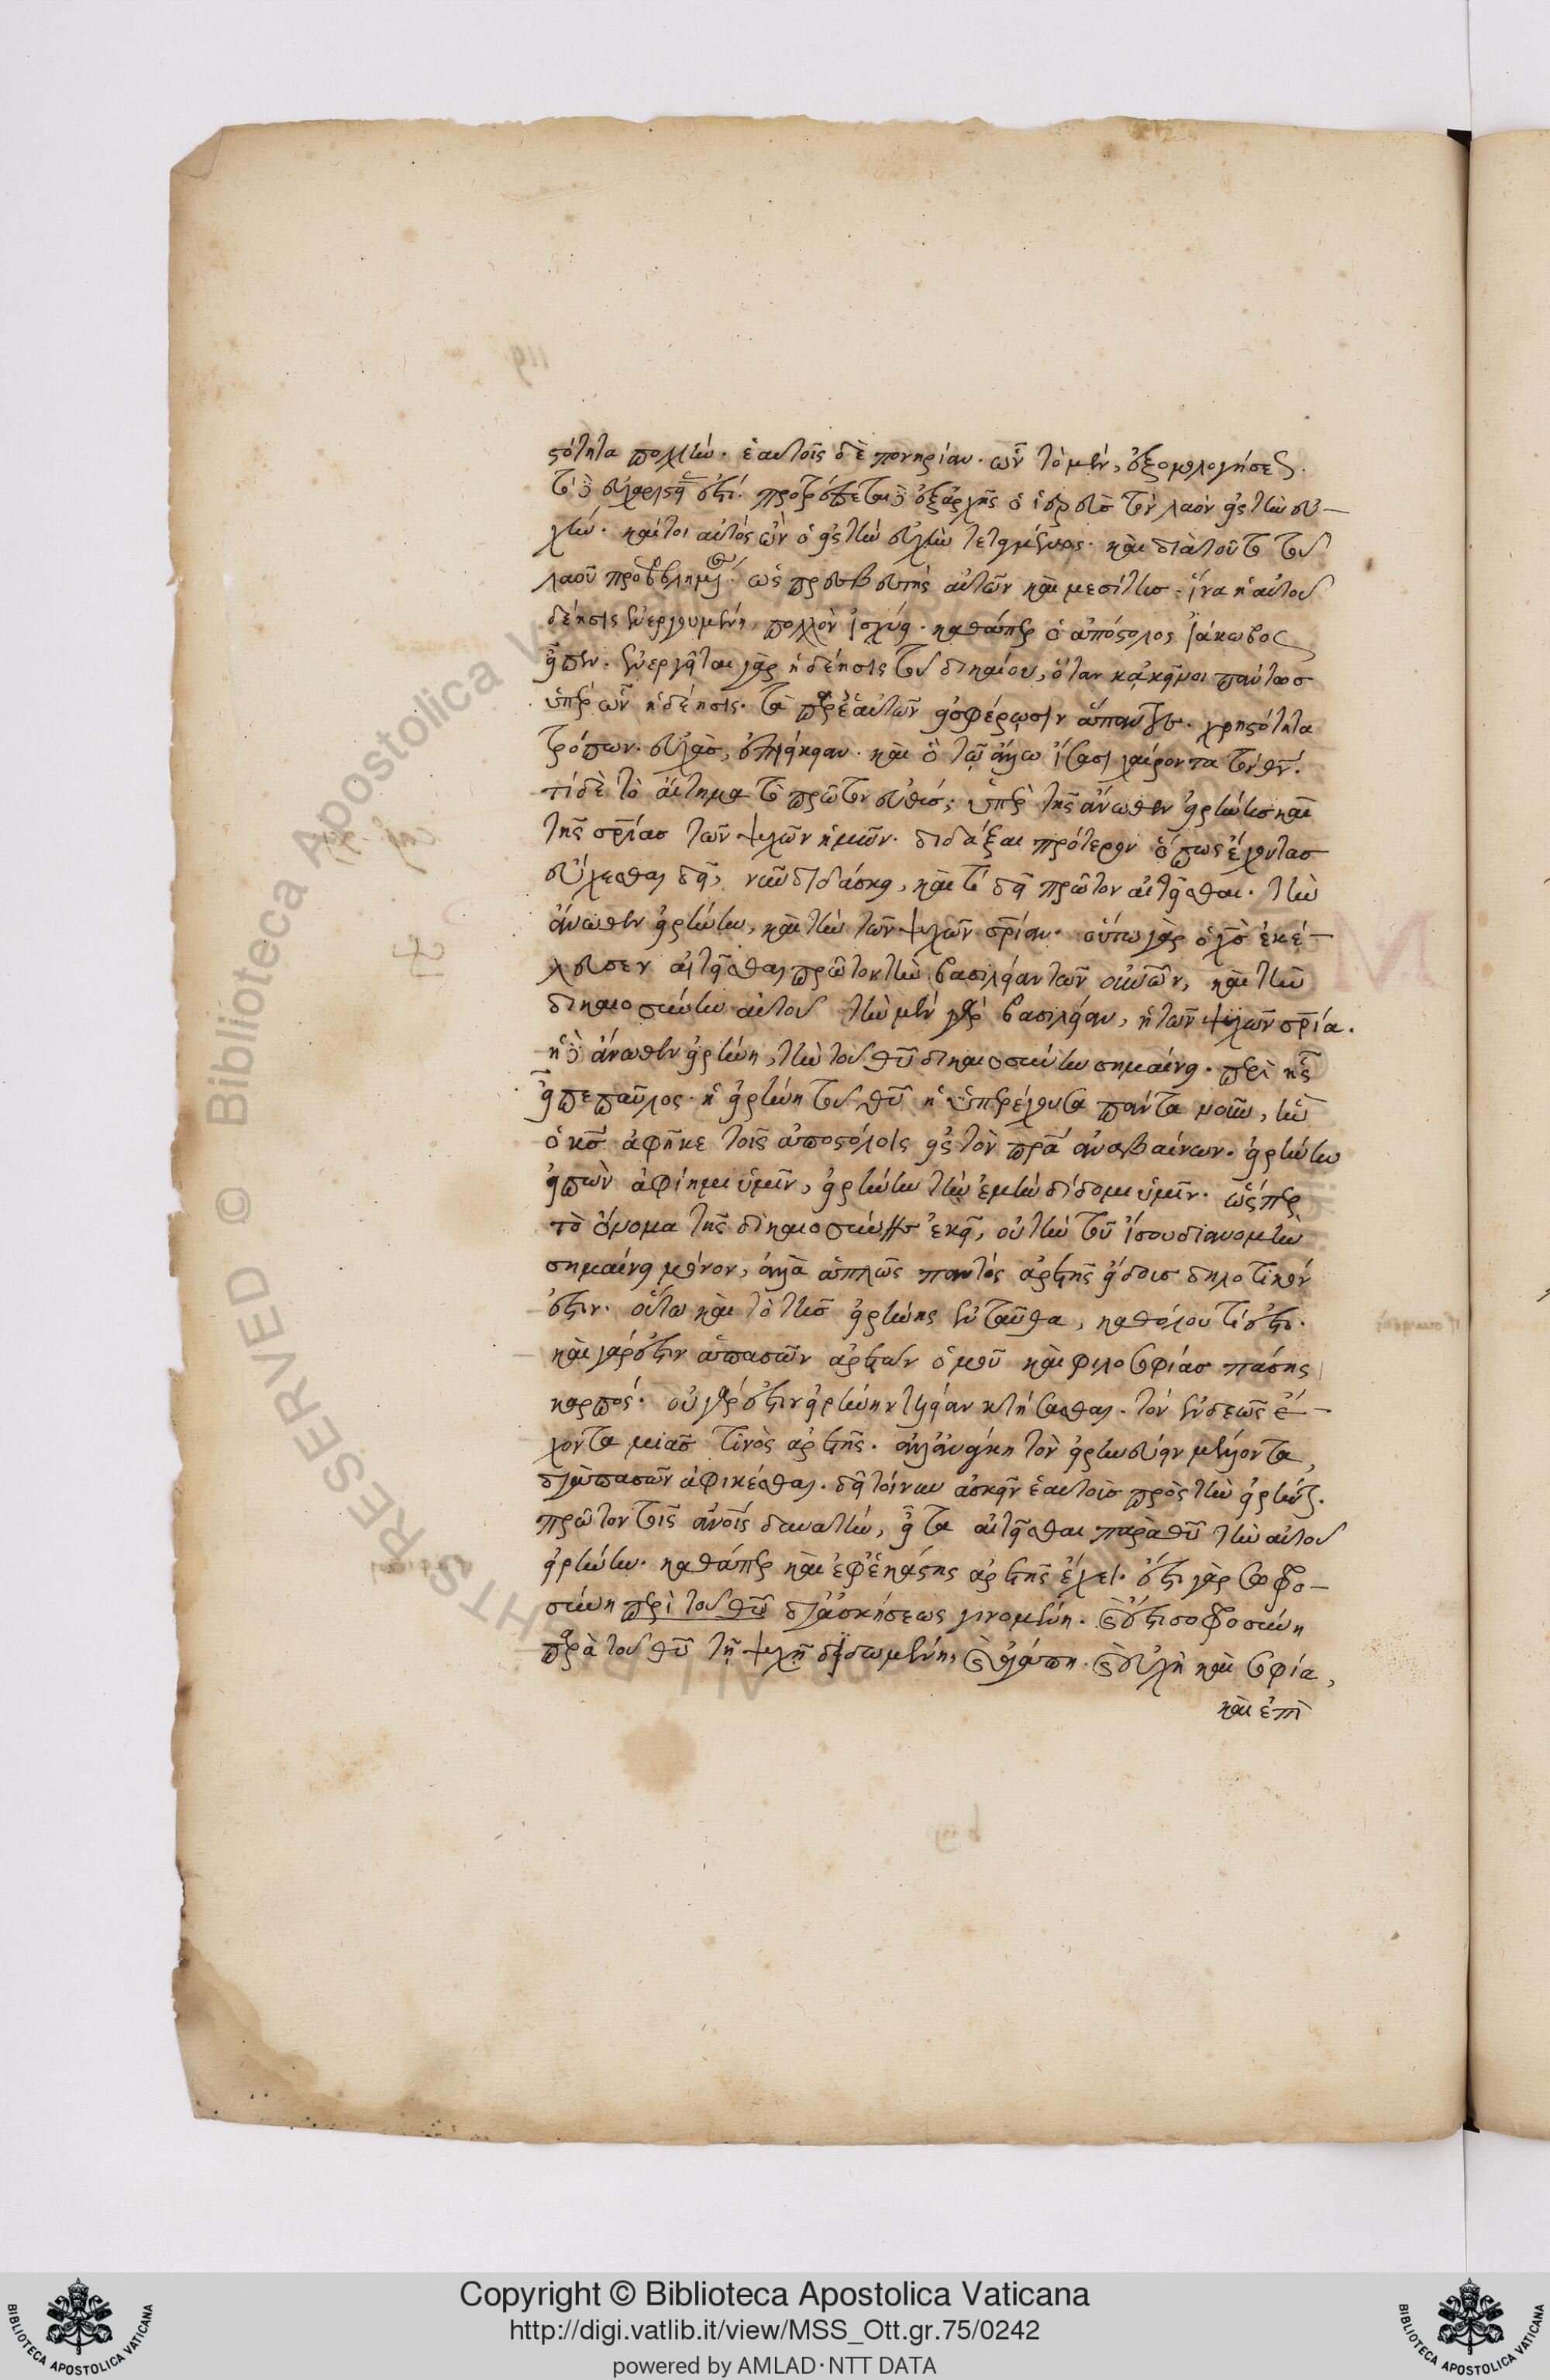 στότητα πολλήν. ἑαυτοῖς δὲ πονηρίαν. ὧν τὸ μὲν, ἐξομολογήσεως.
τὸ δὲ εὐχαριστίας ἐστί. προτρέπεται δὲ ἐξαρχῆς ὁ ἱερεὺς τὸν λαὸν εἰς τὴν εὐ-
χήν. καίτοι αὐτὸς ὢν ὁ εἰς τὴν εὐχὴν τεταγμένος. καὶ διὰ τοῦτο τοῦ
λαοῦ προβεβλημένος. ὡς πρεσβευτὴς αὐτῶν καὶ μεσίτης. ἵνα ἡ αὐτοῦ
δέησις ἐνεργουμένη, πολλὸν ἰσχύῃ. καθάπερ ὁ ἀπόστολος Ἰάκωβος
εἶπεν. ἐνεργεῖται γὰρ ἡ δέησις τοῦ δικαίου, ὅταν κἀκεῖνοι πάντας
ὑπὲρ ὧν ἡ δέησις. τὰ παρ' ἑαυτῶν εἰσφέρωσιν ἅπαντα. χρηστότητα
τρόπων. εὐχὰς, ἐπιείκειαν. καὶ ὃ τῷ ἄνω ἴσασι χαίροντα τὸν θν.
τί δὲ τὸ αἴτημα τὸ πρῶτον εὐθύς; ὑπὲρ τῆς ἄνωθεν εἰρήνης καὶ
τῆς σρίας τῶν ψυχῶν ἡμῶν. διδάξαι πρότερον ὅπως ἔχοντας
εὔχεσθαι δεῖ, νῦν διδάσκει, καὶ τί δεῖ πρῶτον αἰτεῖσθαι. τὴν
ἄνωθεν εἰρήνην, καὶ τὴν τῶν ψυχῶν σρίαν. οὕτω γὰρ ὁ χς ἐκέ-
λευσεν αἰτεῖσθαι πρῶτον τὴν βασιλείαν τῶν οὐνῶν, καὶ τὴν
δικαιοσύνην αὐτοῦ τὴν μὲν γὰρ βασιλείαν, ἡ τῶν ψυχῶν σρία.
ἡ δὲ ἄνωθεν εἰρήνη, τὴν τοῦ θυ δικαιοσύνην σημαίνει. περὶ ἧς
εἶπε παῦλος. ἡ εἰρήνη τοῦ θυ ἡ ὑπερέχουσα πάντα νοῦν, ἣν
ὁ κς ἀφῆκε τοῖς ἀποστόλοις εἰς τὸν πρα ἀναβαίνων. εἰρήνην
εἰπὼν ἀφίημι ὑμῖν, εἰρήνην τὴν ἐμὴν δίδωμι ὑμῖν. ὥσπερ
τὸ ὄνομα τῆς δικαιοσύνης ἐκεῖ, οὐ τὴν τοῦ ἴσου διανομὴν
σημαίνει μόνον, ἀλλὰ ἁπλῶς παντὸς ἀρετῆς εἶδους δηλοτικόν
ἐστιν. οὕτω καὶ τὸ τῆς εἰρήνης ἐνταῦθα, καθόλου τί ἐστι.
καὶ γάρ ἐστιν ἁπασῶν ἀρετῶν ὁμοῦ καὶ φιλοσοφίας πάσης
καρπός. οὐ γάρ ἐστιν εἰρήνην τελείαν κτήσασθαι. τὸν ἐνδεῶς ἔ-
χοντα μιᾶς τινὸς ἀρετῆς. ἀλλ' ἀνάγκη τὸν εἰρηνεύειν μέλλοντα,
διὰ πασῶν ἀφικέσθαι. δεῖ τοίνυν ἀσκεῖν ἑαυτοὺς πρὸς τὴν εἰρήνην.
πρῶτον τοῖς ἀνοις δυνατὴν, εἶτα αἰτεῖσθαι παρὰ θυ τὴν αὐτοῦ
εἰρήνην. καθάπερ καὶ ἐφ' ἑκάστης ἀρετῆς ἔχει. ἔστι γὰρ σωφρο-
σύνη περὶ τοῦ θυ δι' ἀσκήσεως γινομένη. καὶ ἔστι σωφροσύνη
παρὰ τοῦ θυ τῇ ψυχῇ διδομένη, καὶ ἀγάπη. καὶ εὐχὴ καὶ σοφία,
καὶ ἐπὶ